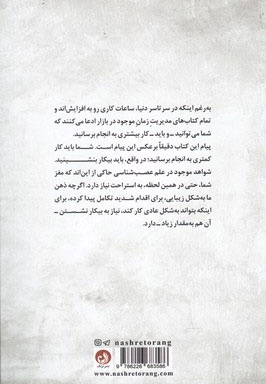 به‌رغم اینکه در سرتاسر دنیا، ساعات کاری رو به افزایش‌اند و
تمام کتاب‌های مدیریت زمانِ موجود در بازار ادعا می‌کنند که
شما می‌توانید ــ و باید ــ کار بیشتری به انجام برسانید.
پیام این کتاب دقیقاً برعکس این پیام است. شما باید کار
کمتری به انجام برسانید؛ در واقع، باید بیکار بنشینید.
شواهد موجود در علم عصب‌شناسی حاکی از این‌اند که مغز
شما، حتی در همین لحظه، به استراحت نیاز دارد. اگرچه ذهن
ما به‌شکل زیبایی، برای اقدام شدید تکامل پیدا کرده، برای
اینکه بتواند به‌شکل عادی کار کند، نیاز به بیکار نشستن ــ
آن هم به‌مقدار زیاد ــ دارد.
nashretorang
9 786226 683586